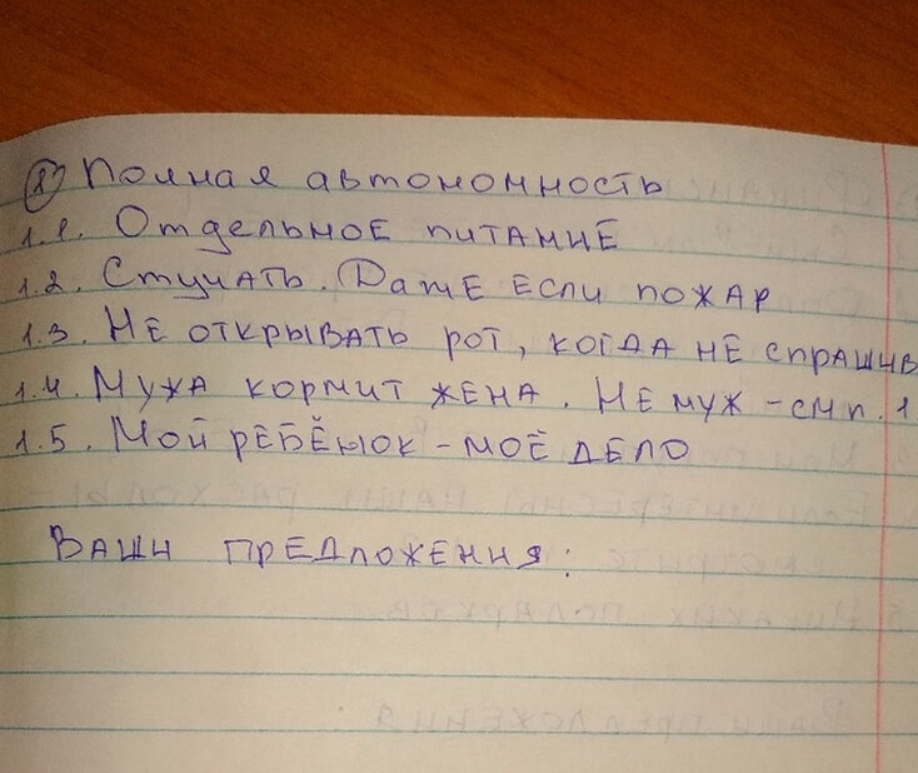 ① Полная автономность
1.1. Отдельное питание
1.2. Стучать. Даже если пожар
1.3. Не открывать рот, когда не спрашив
1.4. Мужа кормит жена. Не муж - см п. 1
1.5. Мой ребёнок - моё дело
Ваши предложения: